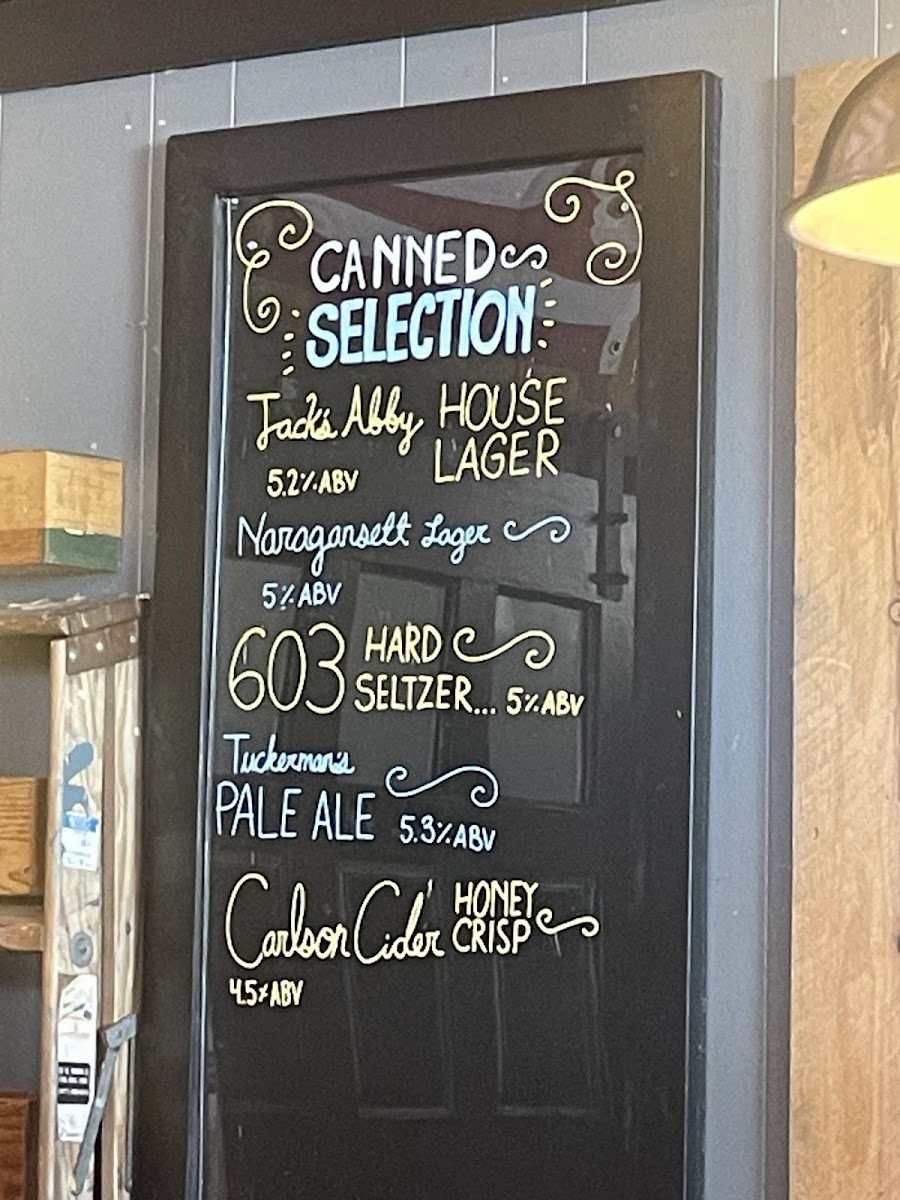 CANNED
SELECTION
Jack's Abby HOUSE
LAGER
5.2% ABV
Naragansett Lager
5% ABV
603 HARD
SELTZER... 5% ABV
Tuckerman's
PALE ALE 5.3% ABV
Carlson Cider HONEY
CRISP
4.5% ABV